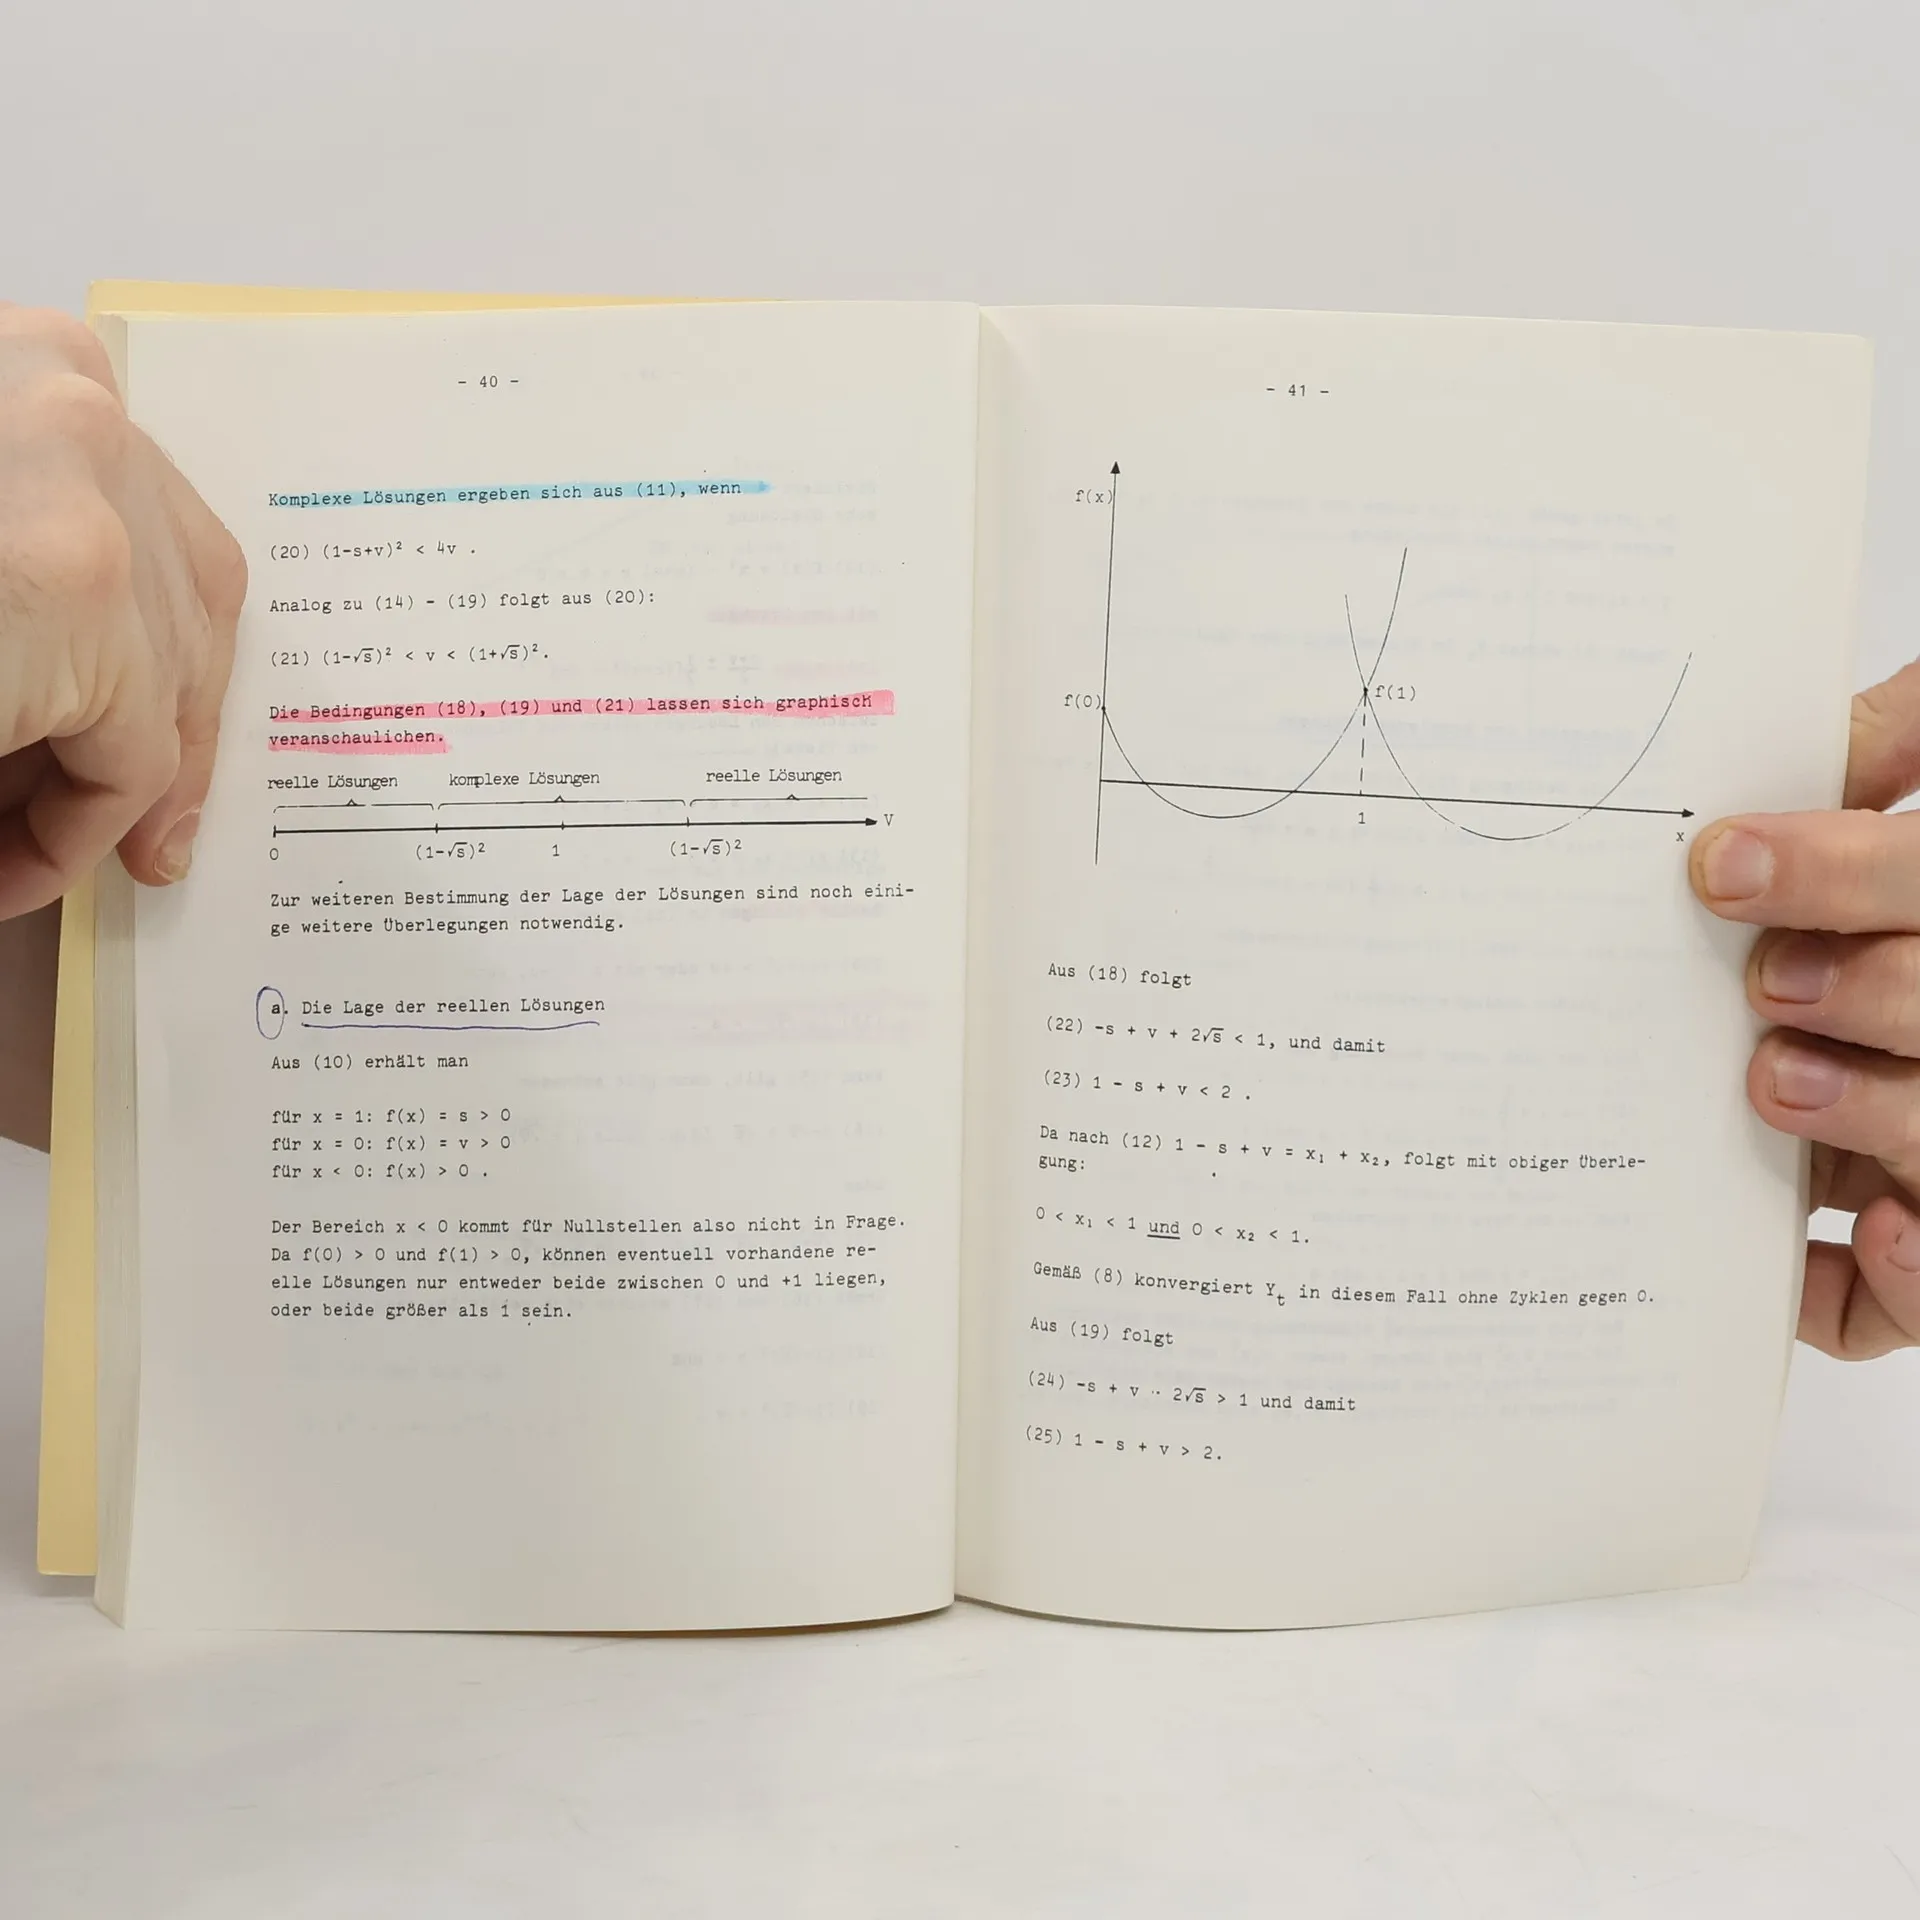 - 40 -
Komplexe Lösungen ergeben sich aus (11), wenn
(20) (1-s+v)² < 4v .
Analog zu (14) - (19) folgt aus (20):
(21) (1-√s)² < v < (1+√s)².
Die Bedingungen (18), (19) und (21) lassen sich graphisch
veranschaulichen.
reelle Lösungen komplexe Lösungen reelle Lösungen
V
0 (1-√s)² 1 (1-√s)²
Zur weiteren Bestimmung der Lage der Lösungen sind noch eini-
ge weitere Überlegungen notwendig.
a. Die Lage der reellen Lösungen
Aus (10) erhält man
für x = 1: f(x) = s > 0
für x = 0: f(x) = v > 0
für x < 0: f(x) > 0 .
Der Bereich x < 0 kommt für Nullstellen also nicht in Frage.
Da f(0) > 0 und f(1) > 0, können eventuell vorhandene re-
elle Lösungen nur entweder beide zwischen 0 und +1 liegen,
oder beide größer als 1 sein.
- 41 -
f(x)
f(0) f(1)
1
x
Aus (18) folgt
(22) -s + v + 2√s < 1, und damit
(23) 1 - s + v < 2 .
Da nach (12) 1 - s + v = x₁ + x₂, folgt mit obiger Überle-
gung:
0 < x₁ < 1 und 0 < x₂ < 1.
Gemäß (8) konvergiert Yₜ in diesem Fall ohne Zyklen gegen 0.
Aus (19) folgt
(24) -s + v - 2√s > 1 und damit
(25) 1 - s + v > 2.